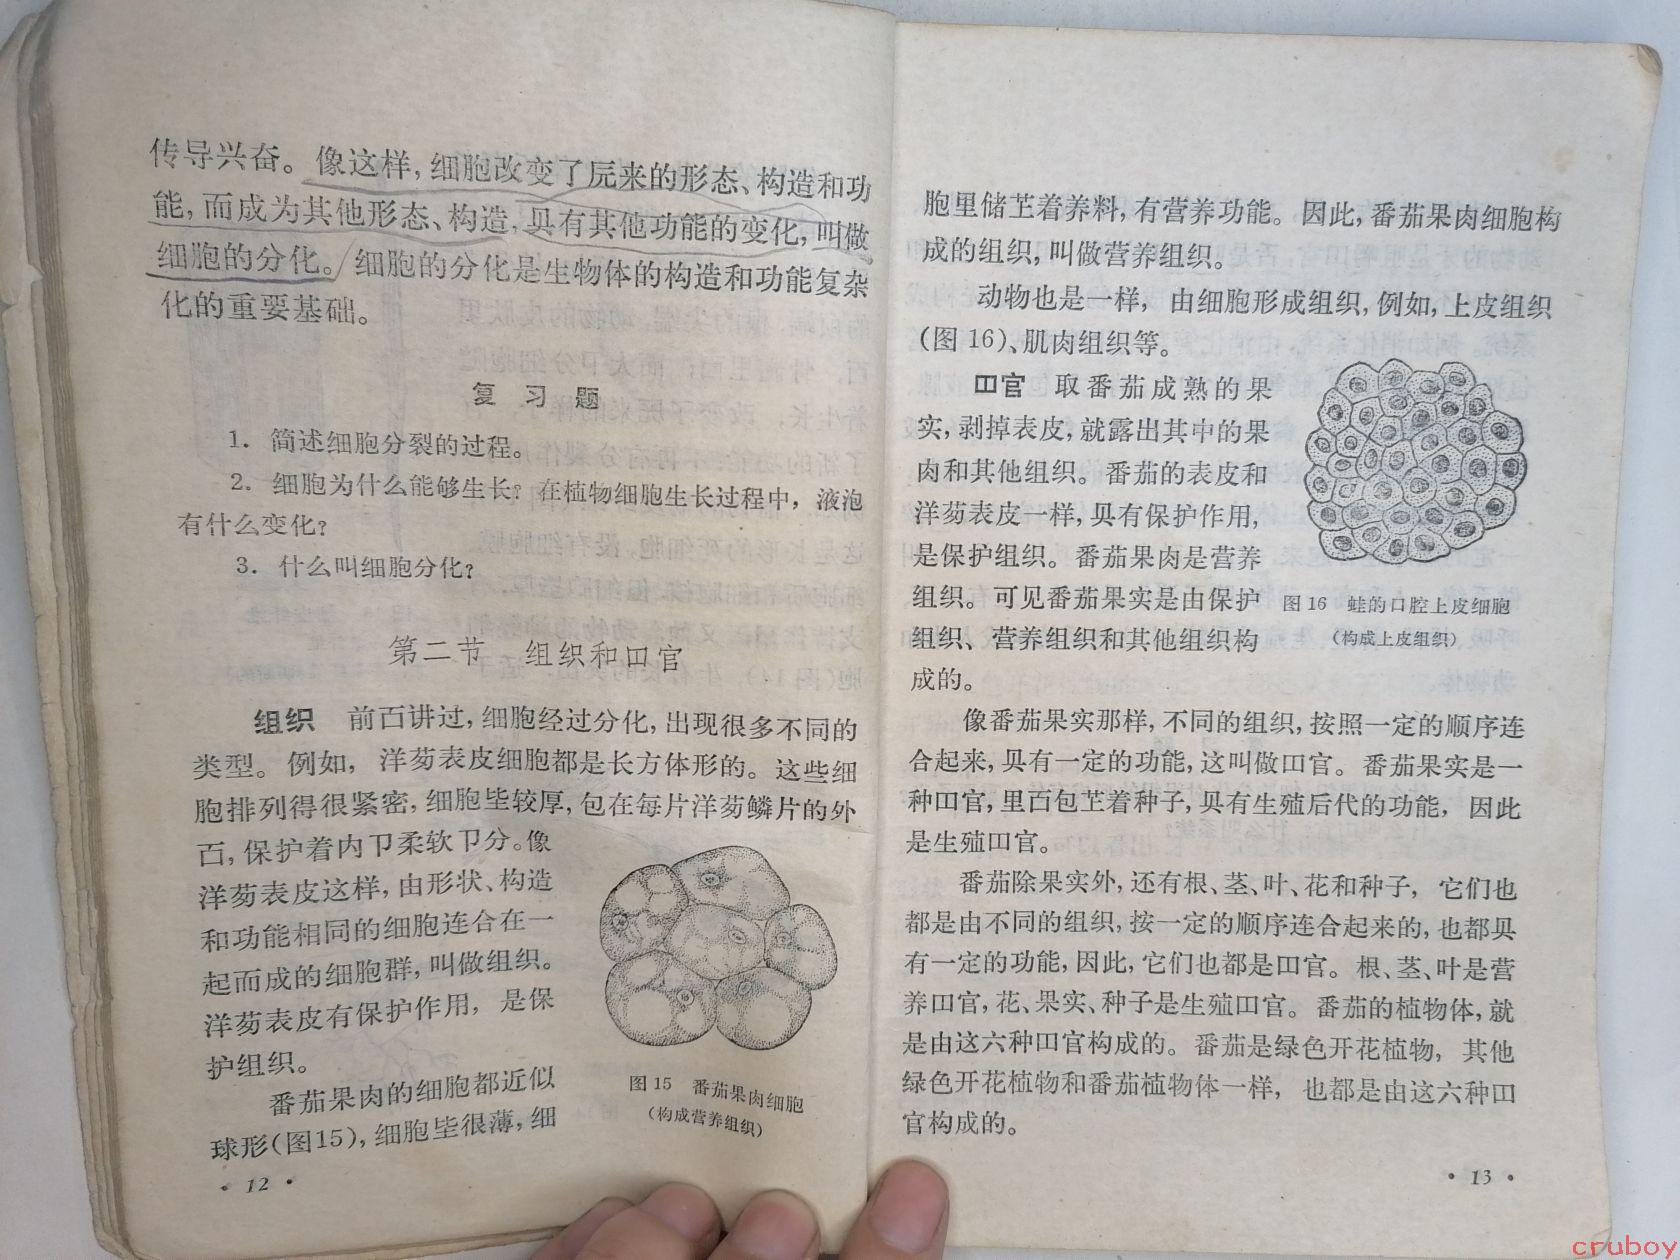 传导兴奋。像这样,细胞改变了原来的形态、构造和功
能,而成为其他形态、构造,具有其他功能的变化,叫做
细胞的分化。细胞的分化是生物体的构造和功能复杂
化的重要基础。
复习题
1. 简述细胞分裂的过程。
2. 细胞为什么能够生长?在植物细胞生长过程中,液泡
有什么变化?
3. 什么叫细胞分化?
第二节 组织和器官
组织 前面讲过,细胞经过分化,出现很多不同的
类型。例如,洋葱表皮细胞都是长方体形的。这些细
胞排列得很紧密,细胞壁较厚,包在每片洋葱鳞片的外
面,保护着内部柔软部分。像
洋葱表皮这样,由形状、构造
和功能相同的细胞连合在一
起而成的细胞群,叫做组织。
洋葱表皮有保护作用,是保
护组织。
番茄果肉的细胞都近似
球形(图15),细胞壁很薄,细
图15 番茄果肉细胞
(构成营养组织)
• 12 •
胞里储藏着养料,有营养功能。因此,番茄果肉细胞构
成的组织,叫做营养组织。
动物也是一样,由细胞形成组织,例如,上皮组织
(图16)、肌肉组织等。
器官 取番茄成熟的果
实,剥掉表皮,就露出其中的果
肉和其他组织。番茄的表皮和
洋葱表皮一样,具有保护作用,
是保护组织。番茄果肉是营养
组织。可见番茄果实是由保护
组织、营养组织和其他组织构
成的。
图16 蛙的口腔上皮细胞
(构成上皮组织)
像番茄果实那样,不同的组织,按照一定的顺序连
合起来,具有一定的功能,这叫做器官。番茄果实是一
种器官,里面包藏着种子,具有生殖后代的功能,因此
是生殖器官。
番茄除果实外,还有根、茎、叶、花和种子,它们也
都是由不同的组织,按一定的顺序连合起来的,也都具
有一定的功能,因此,它们也都是器官。根、茎、叶是营
养器官,花、果实、种子是生殖器官。番茄的植物体,就
是由这六种器官构成的。番茄是绿色开花植物,其他
绿色开花植物和番茄植物体一样,也都是由这六种器
官构成的。
• 13 •
cruboy